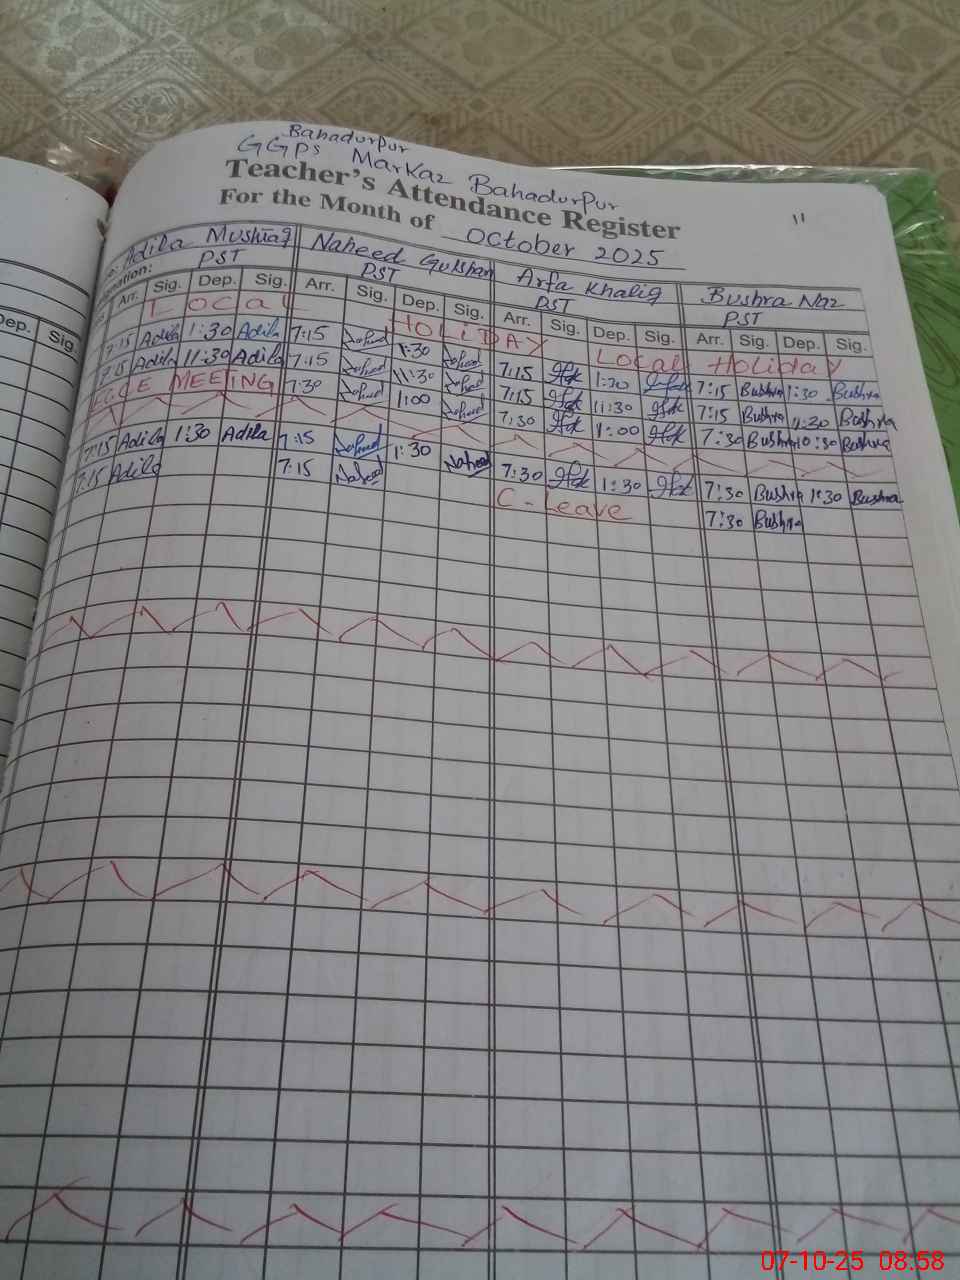 Bahadurpur
GGPS Markaz Bahadurpur
Teacher's Attendance Register
For the Month of October 2025
11
Adila Mushtaq Naheed Gulshan Arfa Khaliq Bushra Naz
PST PST PST PST
Dep. Sig. Arr. Sig. Dep. Sig. Arr. Sig. Dep. Sig. Arr. Sig. Dep. Sig. Arr. Sig. Dep. Sig.
LOCAL HOLIDAY Local Holiday
7:15 Adila 1:30 Adila 7:15 Naheed 1:30 Naheed 7:15 1:30 7:15 Bushra 1:30 Bushra
7:15 Adila 11:30 Adila 7:15 Naheed 11:30 Naheed 7:15 11:30 7:15 Bushra 11:30 Bushra
E.C.C.E MEETING 7:30 Naheed 1:00 Naheed 7:30 1:00 7:30 Bushra 10:30 Bushra
7:15 Adila 1:30 Adila 7:15 Naheed 1:30 Naheed 7:30 1:30 7:30 Bushra 1:30 Bushra
7:15 Adila 7:15 Naheed C-Leave 7:30 Bushra
07-10-25 08:58